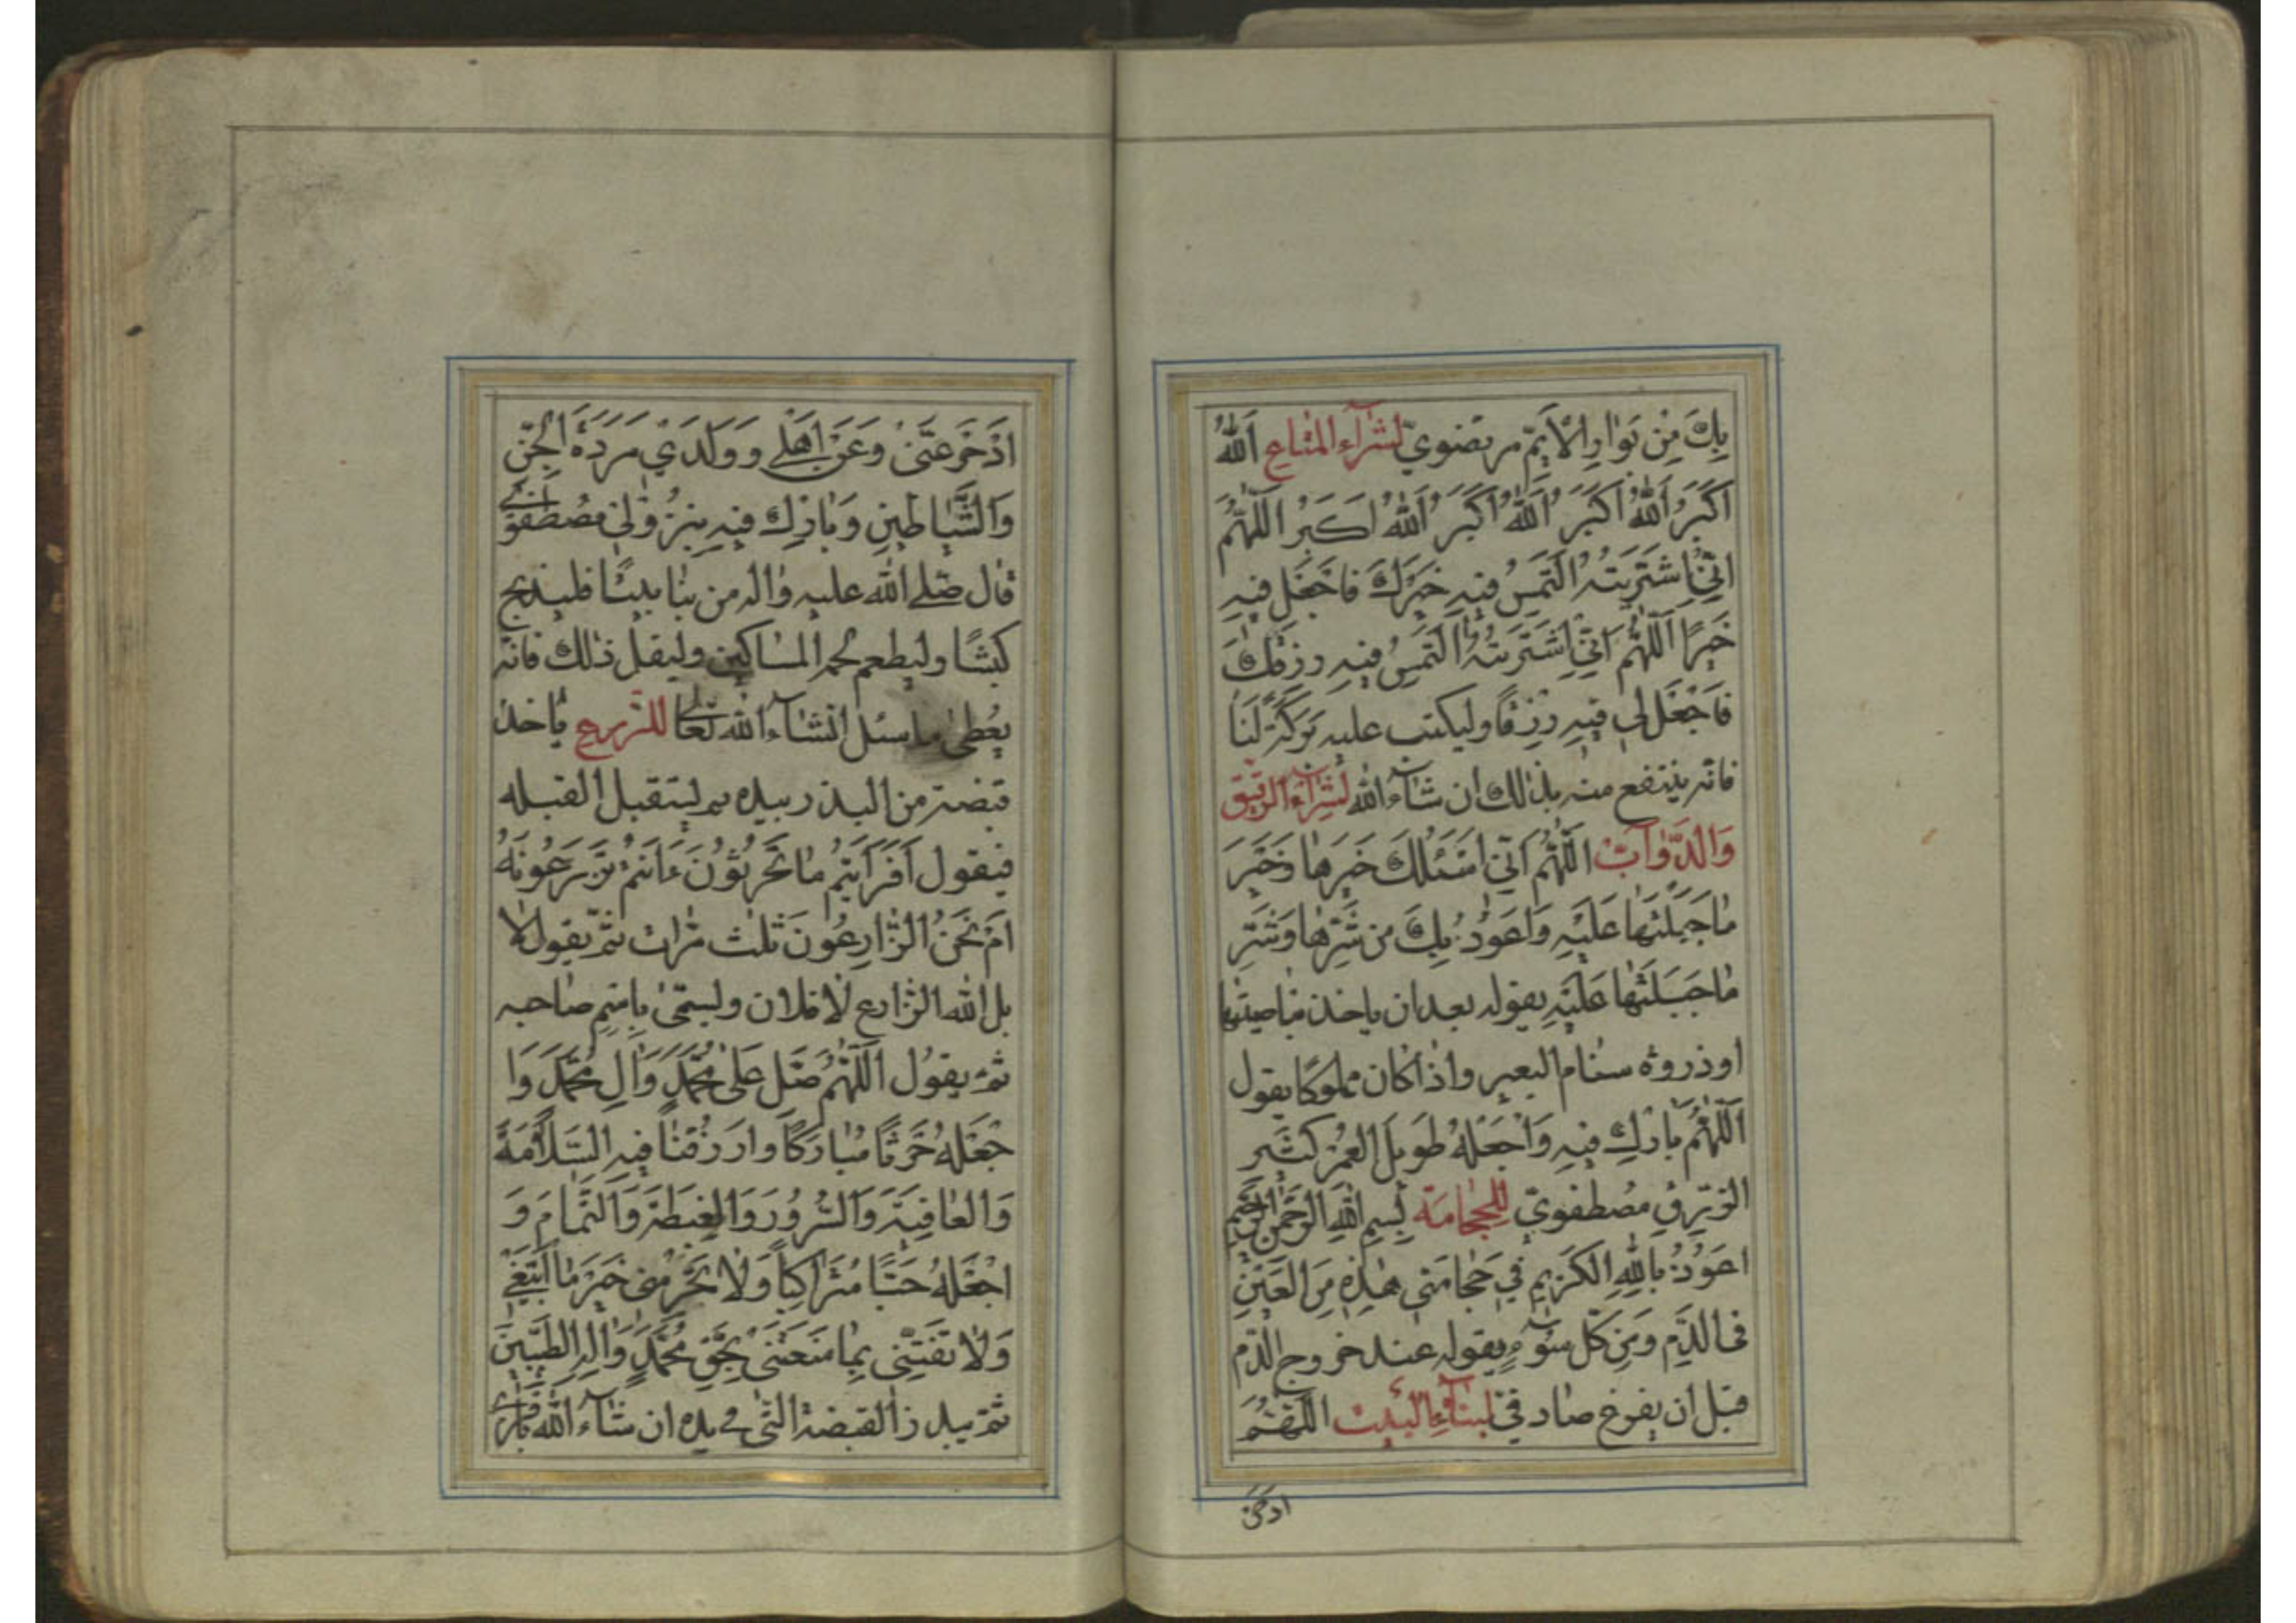 بِكَ مِنْ بَوَارِ الْاَيِّمِ مرتضويّ لشرآء المتاع اَللهُ
اَكْبَرُ اَللهُ اَكْبَرُ اَللهُ اَكْبَرُ اَللهُ اَكبَرُ اَللّهُمَّ
اِنّي اشْتَرَيتُهُ اَلْتَمِسُ فيهِ خَيْرَكَ فَاجْعَل فيهِ
خَيْرًا اَللّهُمَّ اِنّي اشْتَرَيتُهُ اَلْتَمِسُ فيهِ رِزقَكَ
فَاجْعَل لي فيهِ رِزقًا وليكتب عليه بَرَكَةً لَنَا
فانّه ينتفع منه بذلك ان شآء الله لشرآء الرّقيق
وَالدَّوآبّ اَللّهُمَّ اِنّي اَسْئَلُكَ خَيرَها وَخَيْرَ
ما جَبَلْتَها عَلَيْهِ وَاَعُوذُ بِكَ مِن شَرِّها وَشَرِّ
ما جَبَلْتَها عَلَيْهِ يقوله بعد ان ياخذ بناصيتها
او ذروة سنام البعير واذا كان مملوكا يقول
اَللّهُمَّ بارِك فيهِ وَاجْعَلْهُ طَويلَ العُمْرِ كَثيرَ
الرّزقِ مصطفويّ للحجامة بِسمِ اللهِ الرَّحمنِ الرَّحيم
اَعُوذُ بِاللهِ الكَريمِ في حَجامَتي هذِهِ مِنَ العَيْنِ
في الدَّمِ وَمِن كُلِّ سُوءٍ يقوله عند خروج الدّم
قبل ان يفرغ صادقيّ لبنآء البيت اللّهُمَّ
ادحر
ادْحَرْ عَنّي وَعَن اَهْلي وَوَلَدي مَرَدَةَ الجِنِّ
وَالشَّياطينِ وَبارِك فيهِ بِنُزُولي مصطفوي
قال صلّى الله عليه واله من بنا بيتًا فليذبح
كبشًا وليطعم لحمه المساكين وليقل ذلك فانّه
يُعطى ما سئل انشاء الله تعالى للزّرع ياخذ
قبضة من البذر بيده ثم يستقبل القبله
فيقول اَفَرَاَيْتُمْ ما تَحْرُثُونَ ءَاَنْتُمْ تَزْرَعُونَهُ
اَمْ نَحْنُ الزّارِعُونَ ثلث مرّات ثمّ يقول لا
بل الله الزّارع لا فلان ويسمّى باسم صاحبه
ثمّ يقول اَللّهُمَّ صَلِّ عَلى مُحَمَّدٍ وَالِ مُحَمَّدٍ وَا
جْعَلْهُ حَرْثًا مُبارَكًا وارزُقْنا فيهِ السَّلامَةَ
وَالعافِيَةَ وَالسُّرُورَ وَالغِبطَةَ وَالتَّمامَ وَ
اجْعَلْهُ حَبًّا مُتَراكِبًا وَلا تَحْرِمْني خَيْرَ ما اَبْتَغي
وَلا تَفْتِنّي بِما مَنَعْتَني بِحَقِّ مُحَمَّدٍ وَالِهِ الطَّيِّبينَ
ثمّ يبذر القبضة التي في يده ان شآء الله